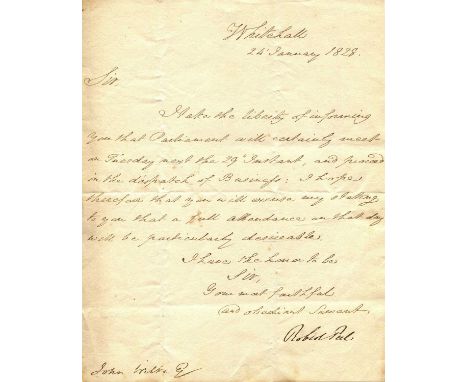 Whitehall
24 January 1828.
Sir,
I take the liberty of informing
you that Parliament will certainly meet
on Tuesday next the 29th Instant, and proceed
in the dispatch of Business; I hope
therefore that you will excuse my stating
to you that a full attendance on that day
will be particularly desireable.
I have the honor to be
Sir,
Your most faithful
and obedient Servant,
Robert Peel.
John